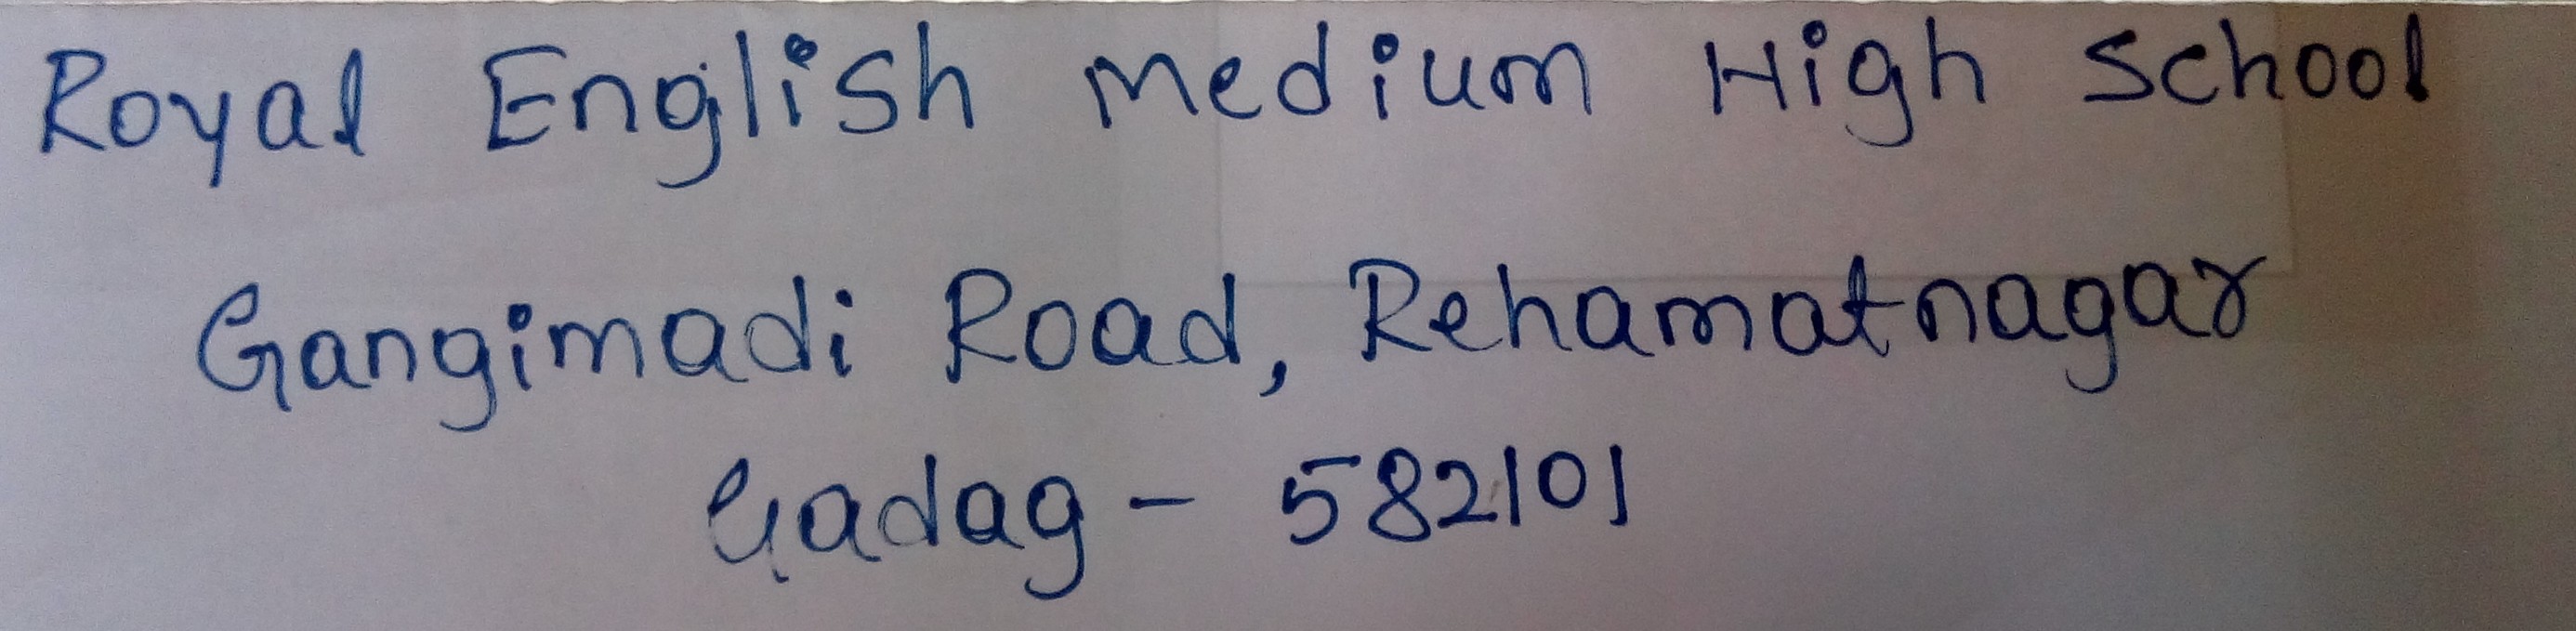 Royal English medium High School
Gangimadi Road, Rehamatnagar
Gadag - 582101